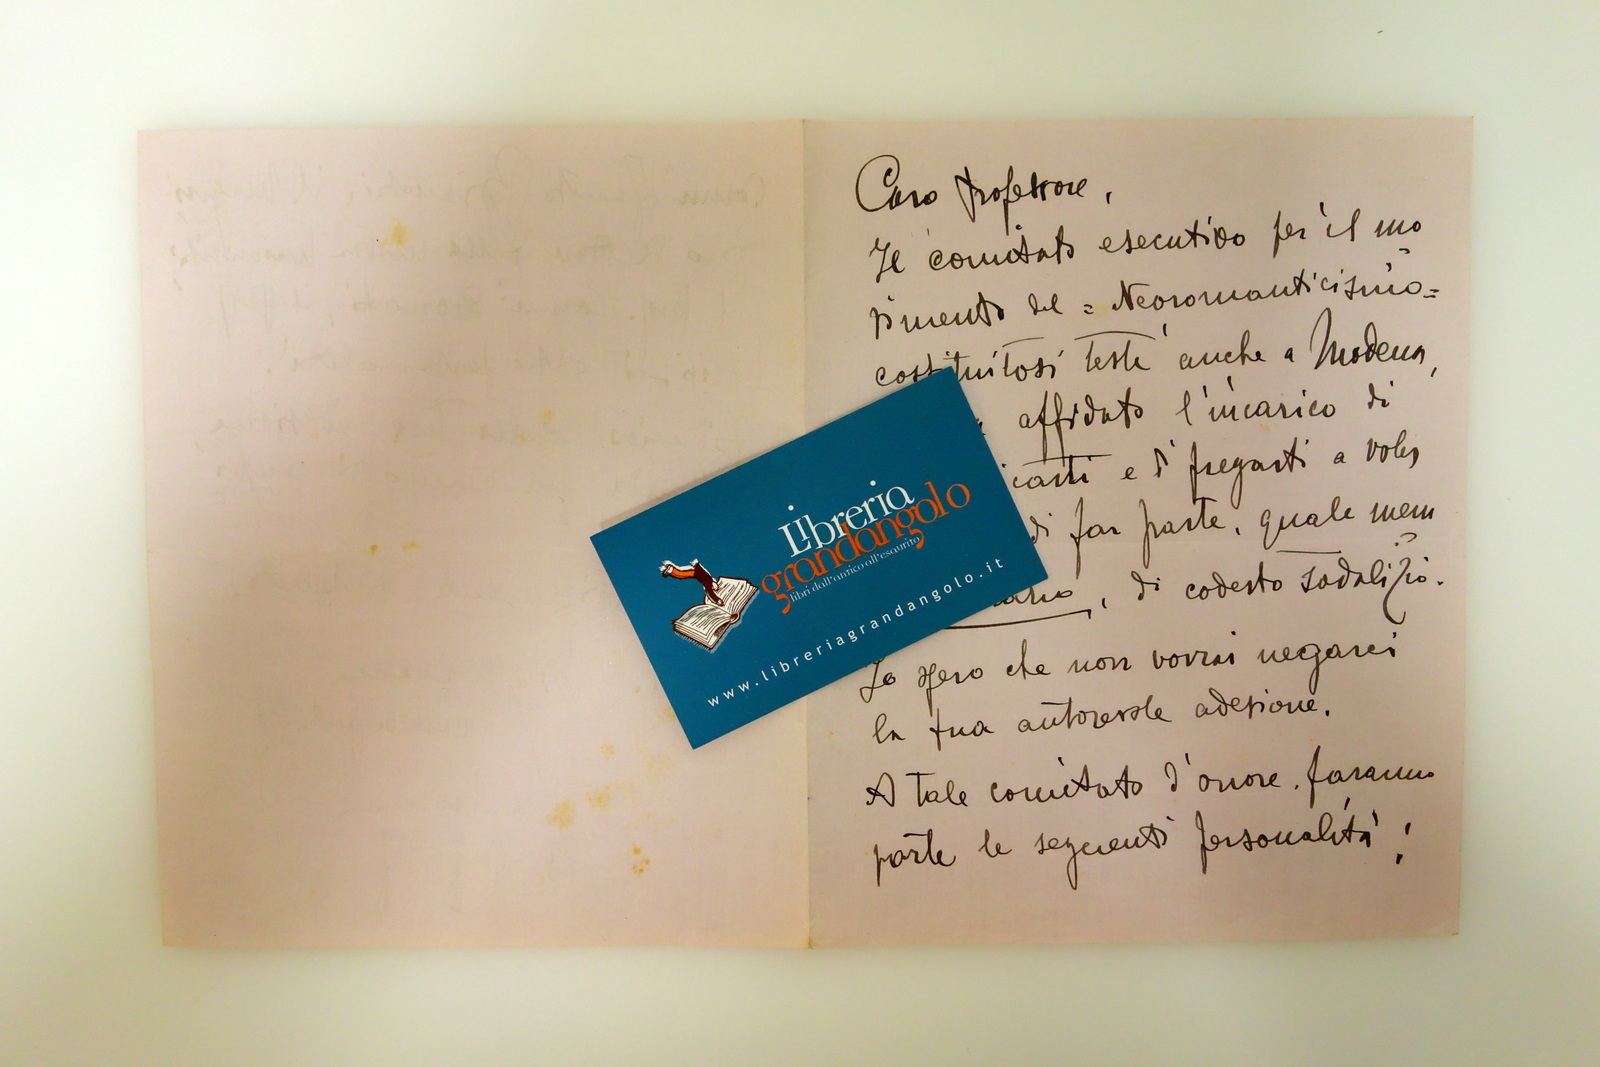 Caro Professore,
Il comitato esecutivo per il mo
vimento del = Neoromanticismo =
costituitosi testé anche a Modena,
affidato l'incarico di
e di pregarti a voler
di far parte, quale mem
, di codesto sodalizio.
Io spero che non vorrai negarci
la tua autorevole adesione.
A tale comitato d'onore faranno
parte le seguenti personalità:
Libreria
grandangolo
libri dall'antico all'esaurito
www.libreriagrandangolo.it